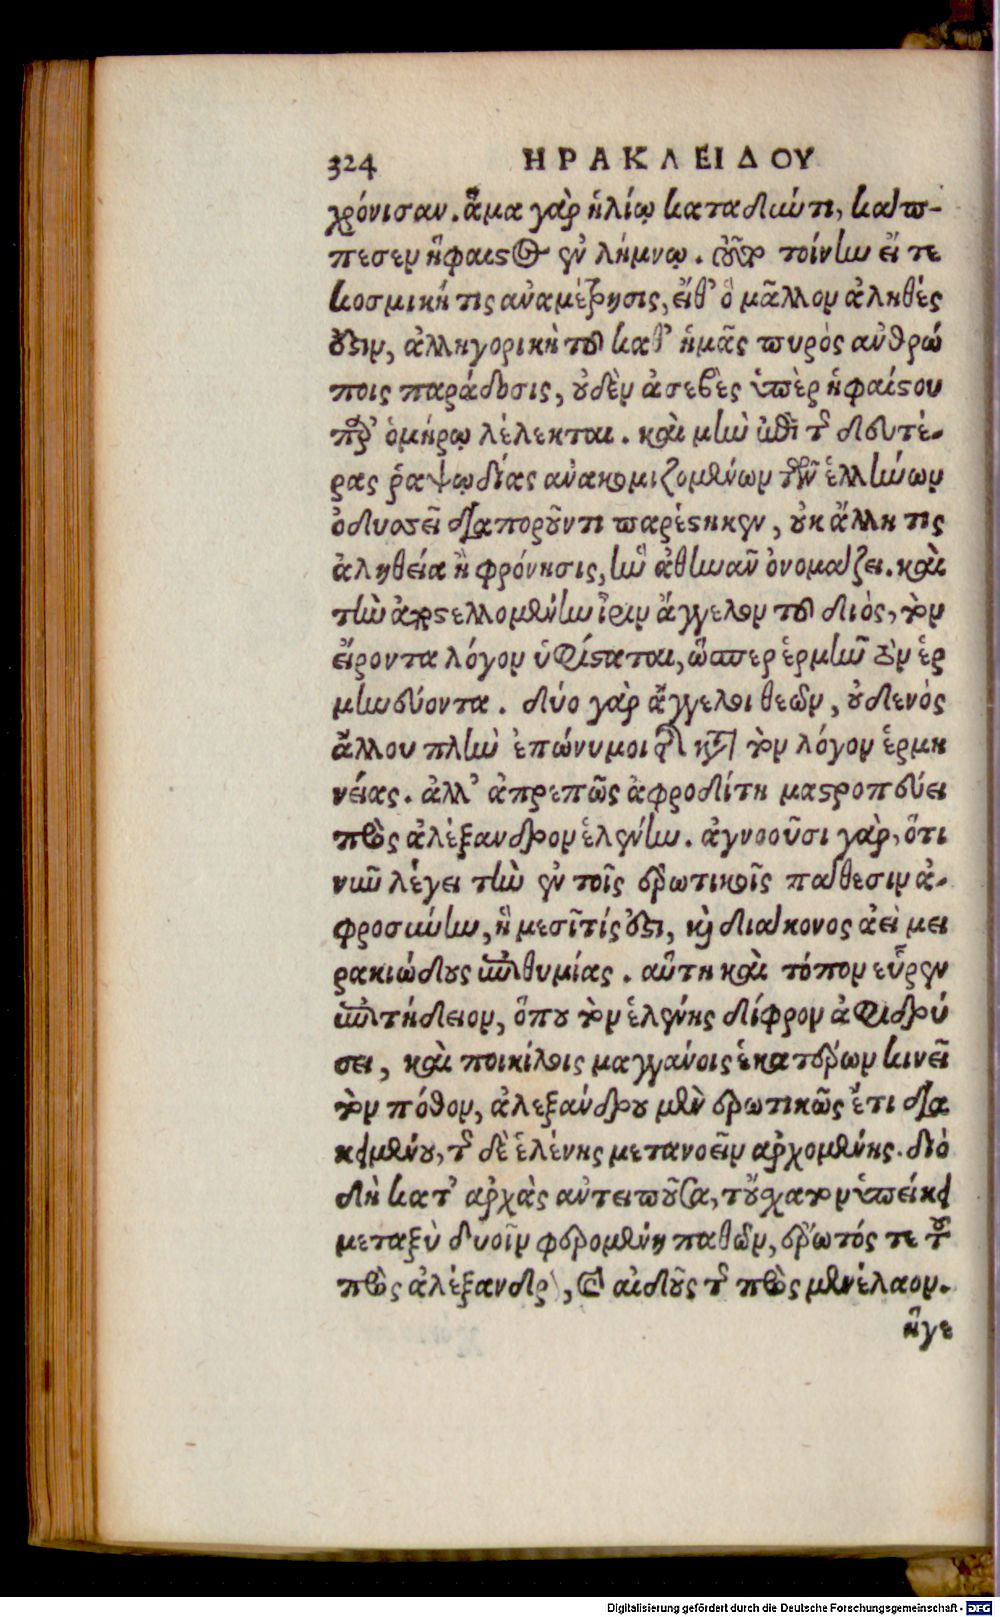 324 ΗΡΑΚΛΕΙΔΟΥ
χρόνισαν. ἅμα γὰρ ἡλίῳ καταδύντι, κάπ-
πεσεν ἥφαιστος ἐν λήμνῳ. οὗτοι τοίνυν εἴ τε
κοσμική τις ἀναμέτρησις, εἴθ' ὃ μᾶλλον ἀληθές
ἐστιν, ἀλληγορικὴ τοῦ καθ' ἡμᾶς πυρὸς ἀνθρώ
ποις παράδοσις, οὐδὲν ἀσεβὲς ὑπὲρ ἡφαίστου
παρ' ὁμήρῳ λέλεκται. καὶ μὴν ἐπὶ τῆς δευτέ-
ρας ῥαψῳδίας ἀνακομιζομένων τῶν ἑλλήνων
ὀδυσσεῖ διαποροῦντι παρέστηκεν, οὐκ ἄλλη τις
ἀληθεία ἢ φρόνησις, ἣν ἀθηνᾶν ὀνομάζει. καὶ
τὴν ἀποστελλομένην ἶριν ἄγγελον τοῦ διὸς, τὸν
εἴροντα λόγον ὑφίσταται, ὥσπερ ἑρμῆν τὸν ἑρ
μηνεύοντα. δύο γὰρ ἄγγελοι θεῶν, οὐδενὸς
ἄλλου πλὴν ἐπώνυμοι τῆς κατὰ τὸν λόγον ἑρμη
νείας. ἀλλ' ἀπρεπῶς ἀφροδίτη μαστροπεύει
πρὸς ἀλέξανδρον ἑλένην. ἀγνοοῦσι γὰρ, ὅτι
νῦν λέγει τὴν ἐν τοῖς ἐρωτικοῖς πάθεσιν ἀ-
φροσύνην, ἣ μεσῖτίς ἐστι, καὶ διάκονος ἀεὶ μει
ρακιώδους ἐπιθυμίας. αὕτη καὶ τόπον εὗρεν
ἐπιτήδειον, ὅπου τὸν ἑλένης δίφρον ἀφιδρύ
σει, καὶ ποικίλοις μαγγάνοις ἑκατέρων κινεῖ
τὸν πόθον, ἀλεξάνδρου μὲν ἐρωτικῶς ἔτι δια
κειμένου, τῆς δὲ ἑλένης μετανοεῖν ἀρχομένης. διὸ
δὴ κατ' ἀρχὰς ἀντειποῦσα, τοὔσχατον ὑπείκει
μεταξὺ δυοῖν φερομένη παθῶν, ἔρωτός τε τοῦ
πρὸς ἀλέξανδρον, καὶ αἰδοῦς τῆς πρὸς μενέλαον.
ἥγε
Digitalisierung gefördert durch die Deutsche Forschungsgemeinschaft - DFG